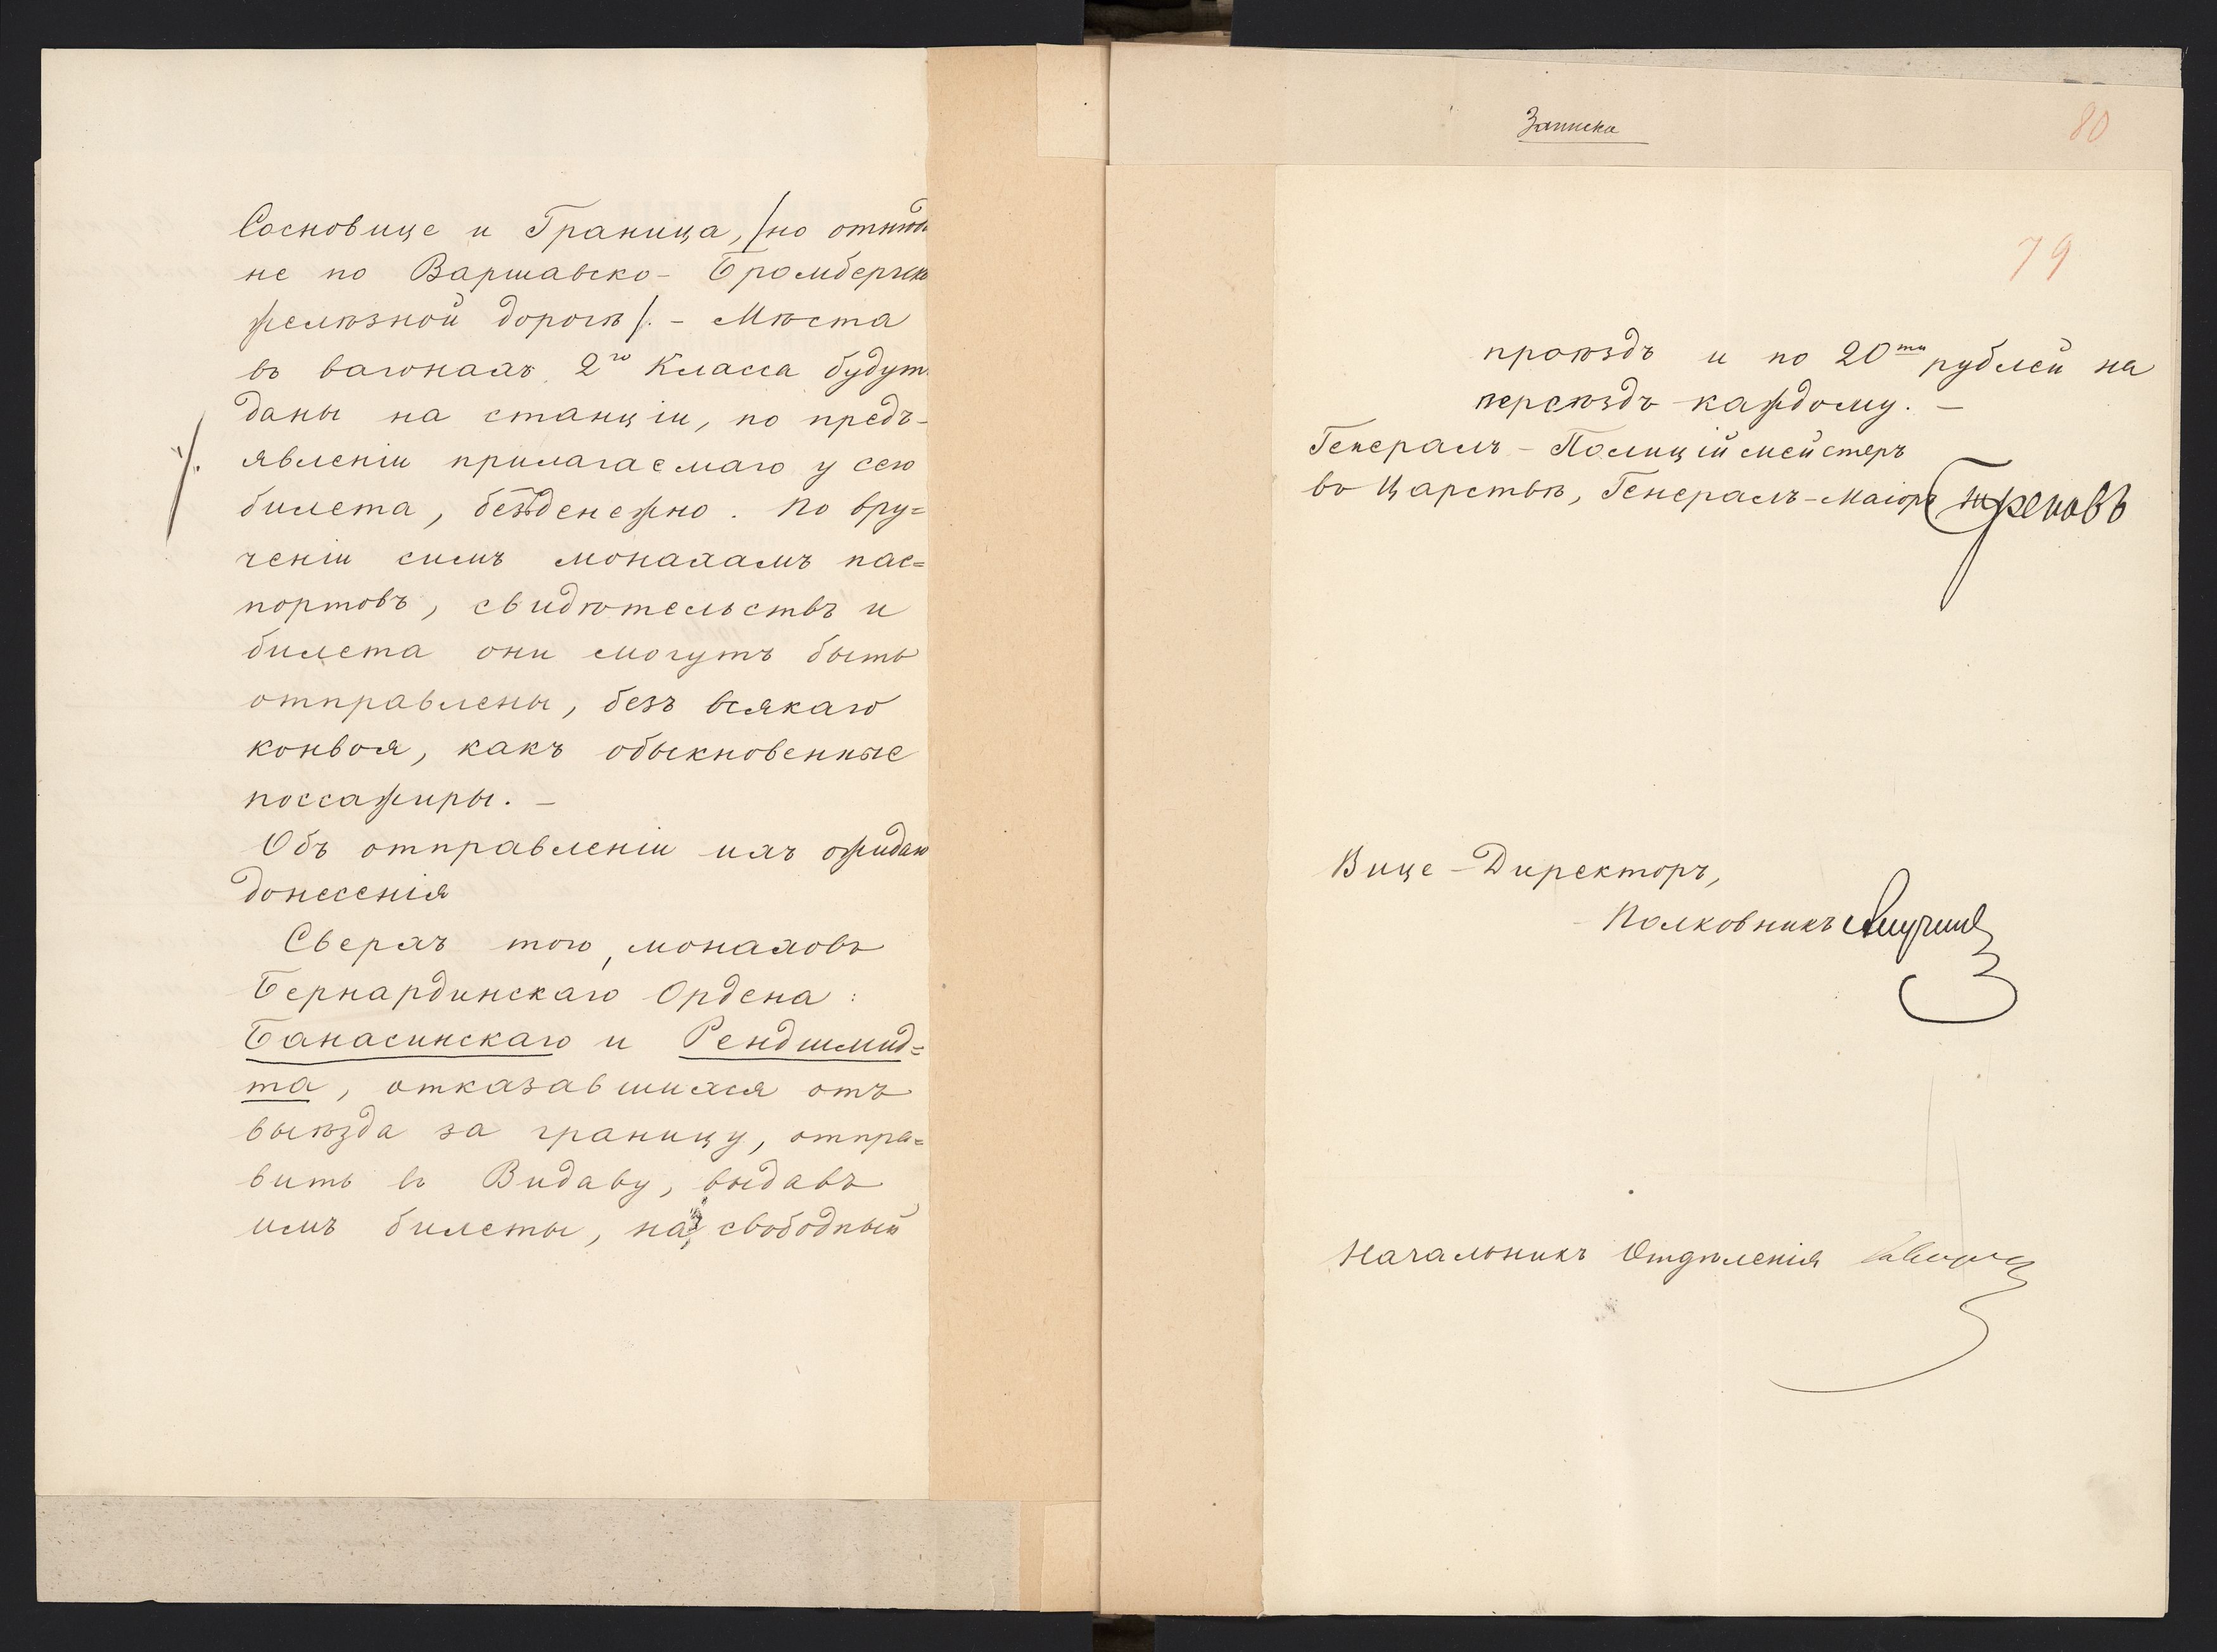 Сосновице и Граница, /но отнюдь
не по Варшавско-Бромбергск
желѣзной дорогѣ/. - Мѣста
въ вагонахъ 2го Класса будутъ
даны на станціи, по предъ-
явленіи прилагаемаго у сего
билета, безденежно. По вру=
ченіи симъ монахамъ пас=
портовъ, свидѣтельствъ и
билета они могутъ быть
отправлены, безъ всякаго
конвоя, какъ обыкновенные
поссажиры. -
Объ отправленіи ихъ ожидаю
донесенія
Сверхъ того, монаховъ
Бернардинскаго Ордена:
Банасинскаго и Рендшмид=
та, отказавшихся отъ
выѣзда за границу, отпра=
вить въ Видаву, выдавъ
имъ билеты, на свободный
Записка
80
79
проѣздъ и по 20ти рублей на
переѣздъ каждому. -
Генералъ-Полиціймейстеръ
въ Царствѣ, Генералъ-Маіоръ Треповъ
Вице-Директоръ,
Полковникъ Анучинъ
Начальникъ Отдѣленія